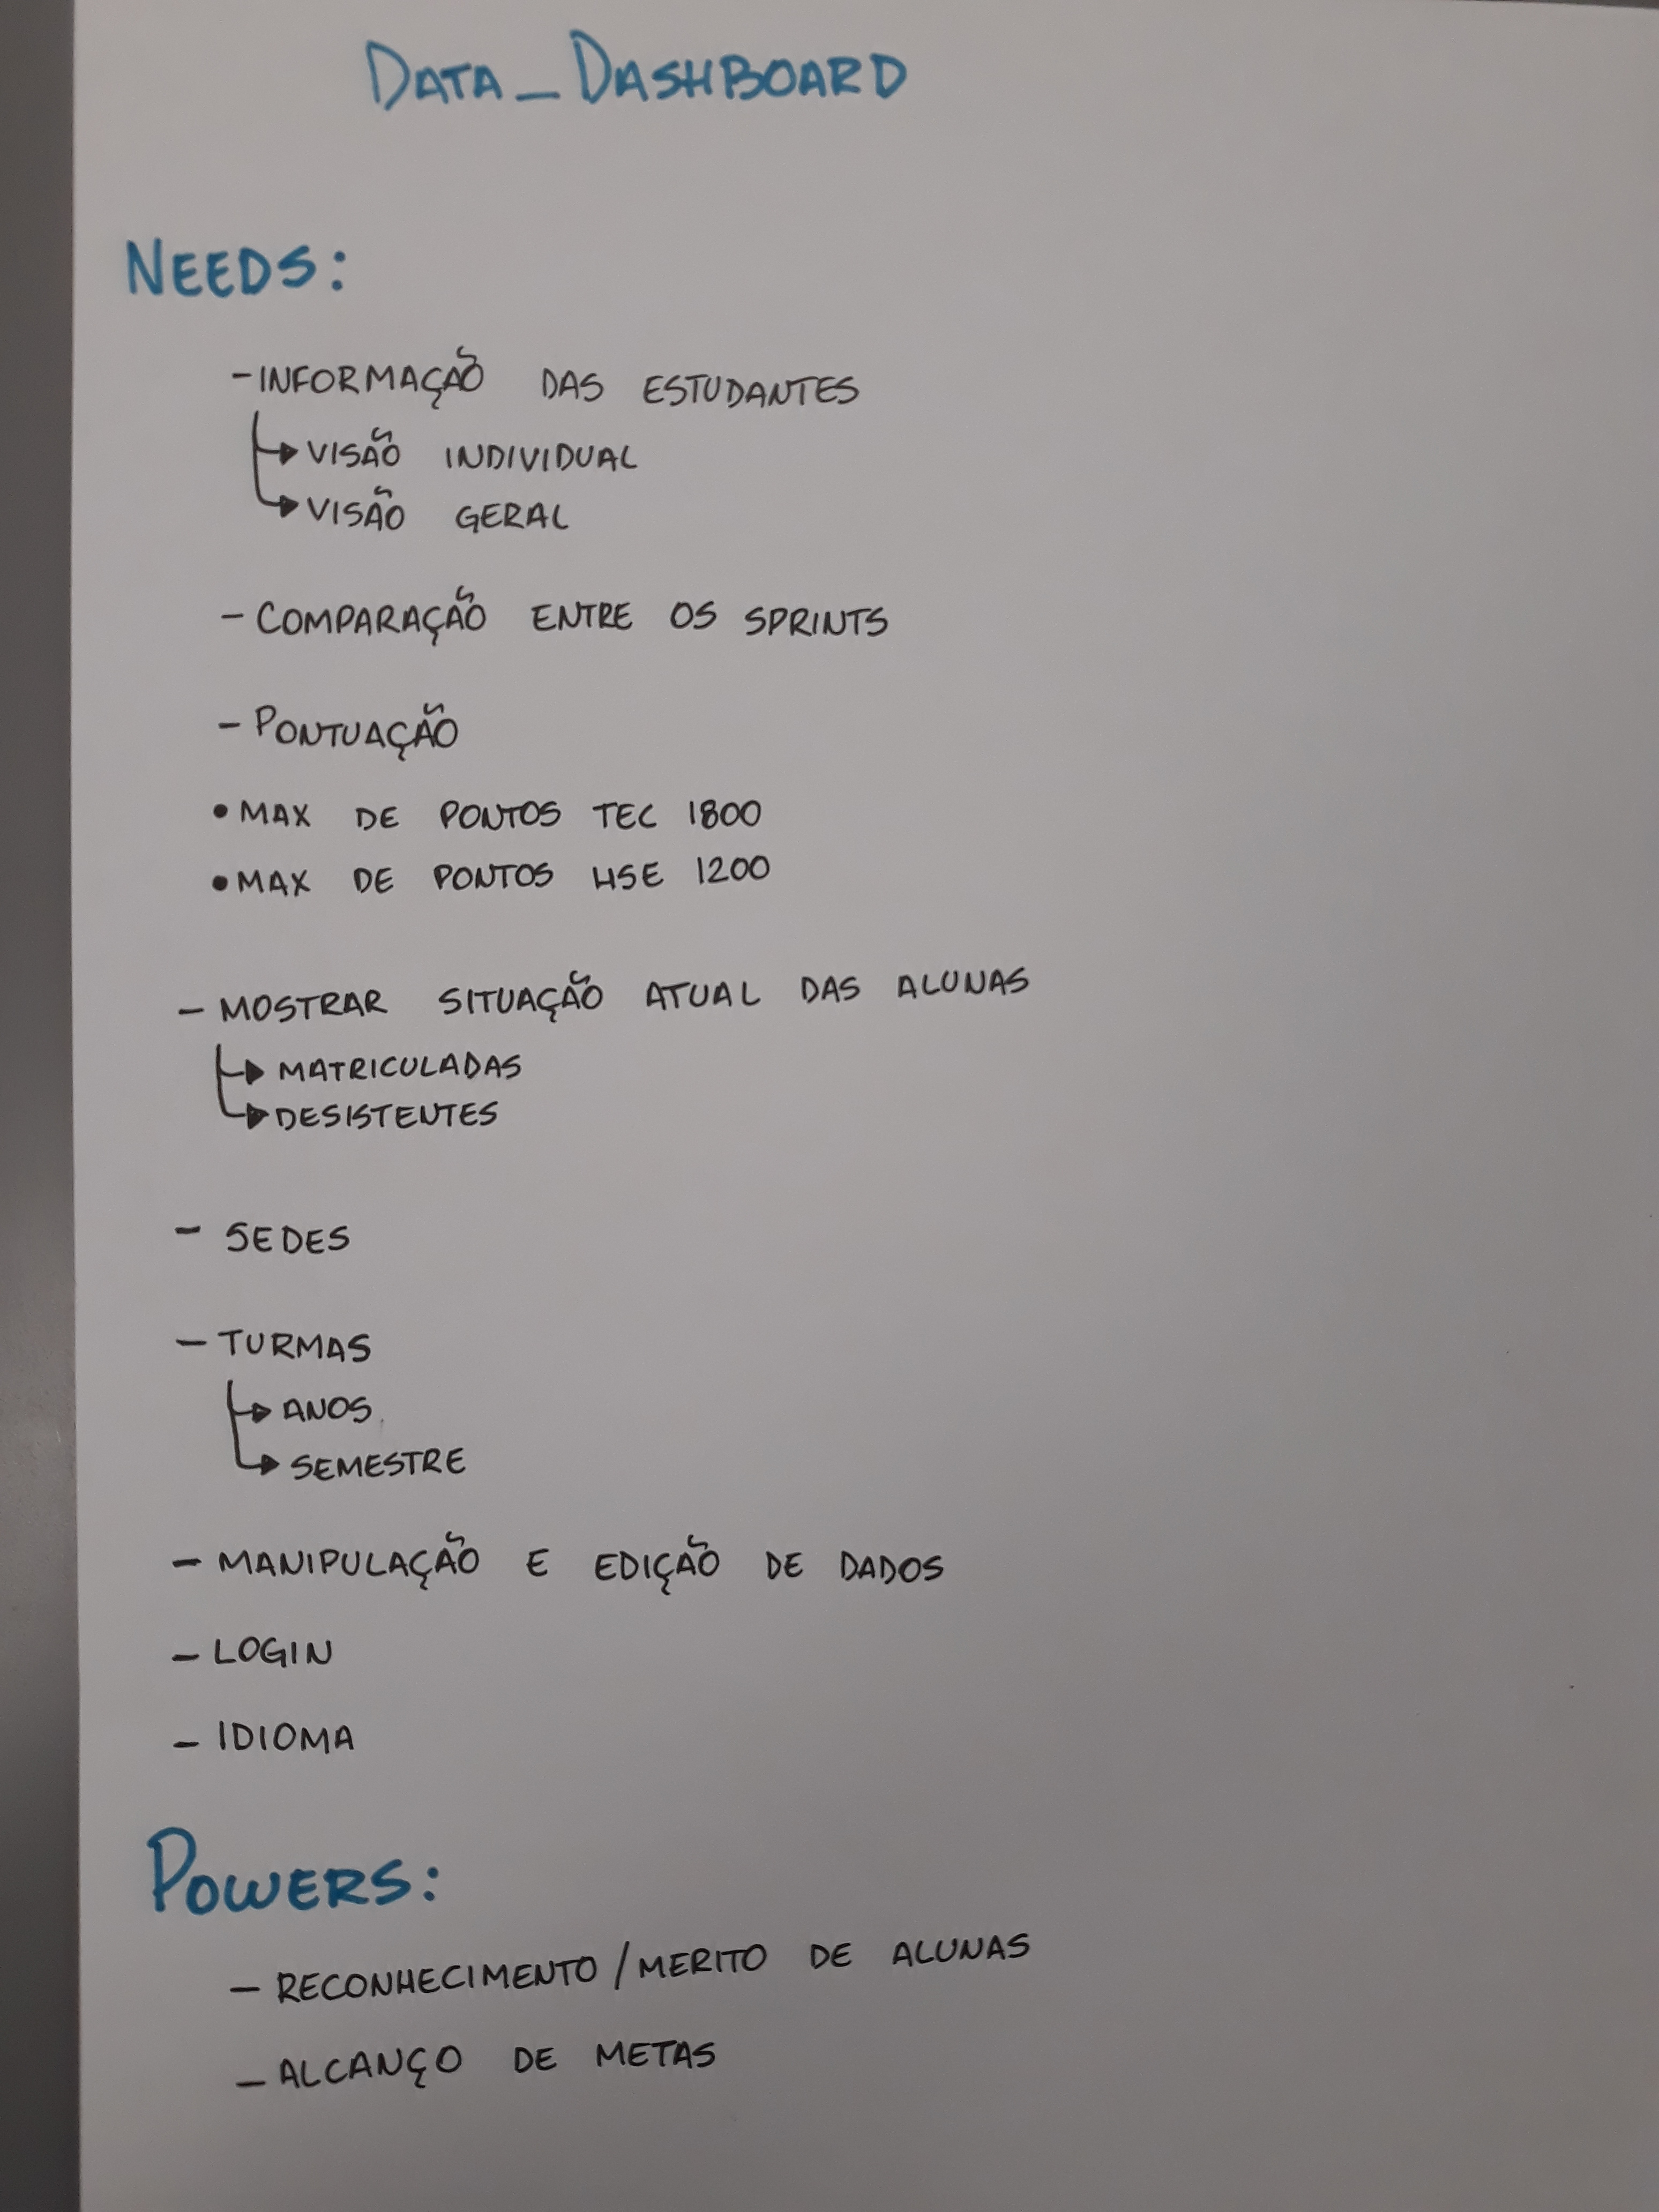 DATA_DASHBOARD
NEEDS:
- INFORMAÇAÕ DAS ESTUDANTES
VISAÕ INDIVIDUAL
VISAÕ GERAL
- COMPARAÇAÕ ENTRE OS SPRINTS
- PONTUAÇAÕ
• MAX DE PONTOS TEC 1800
• MAX DE PONTOS HSE 1200
- MOSTRAR SITUAÇAÕ ATUAL DAS ALUNAS
MATRICULADAS
DESISTENTES
- SEDES
- TURMAS
ANOS
SEMESTRE
- MANIPULAÇAÕ E EDIÇAÕ DE DADOS
- LOGIN
- IDIOMA
POWERS:
- RECONHECIMENTO/MERITO DE ALUNAS
- ALCANÇO DE METAS